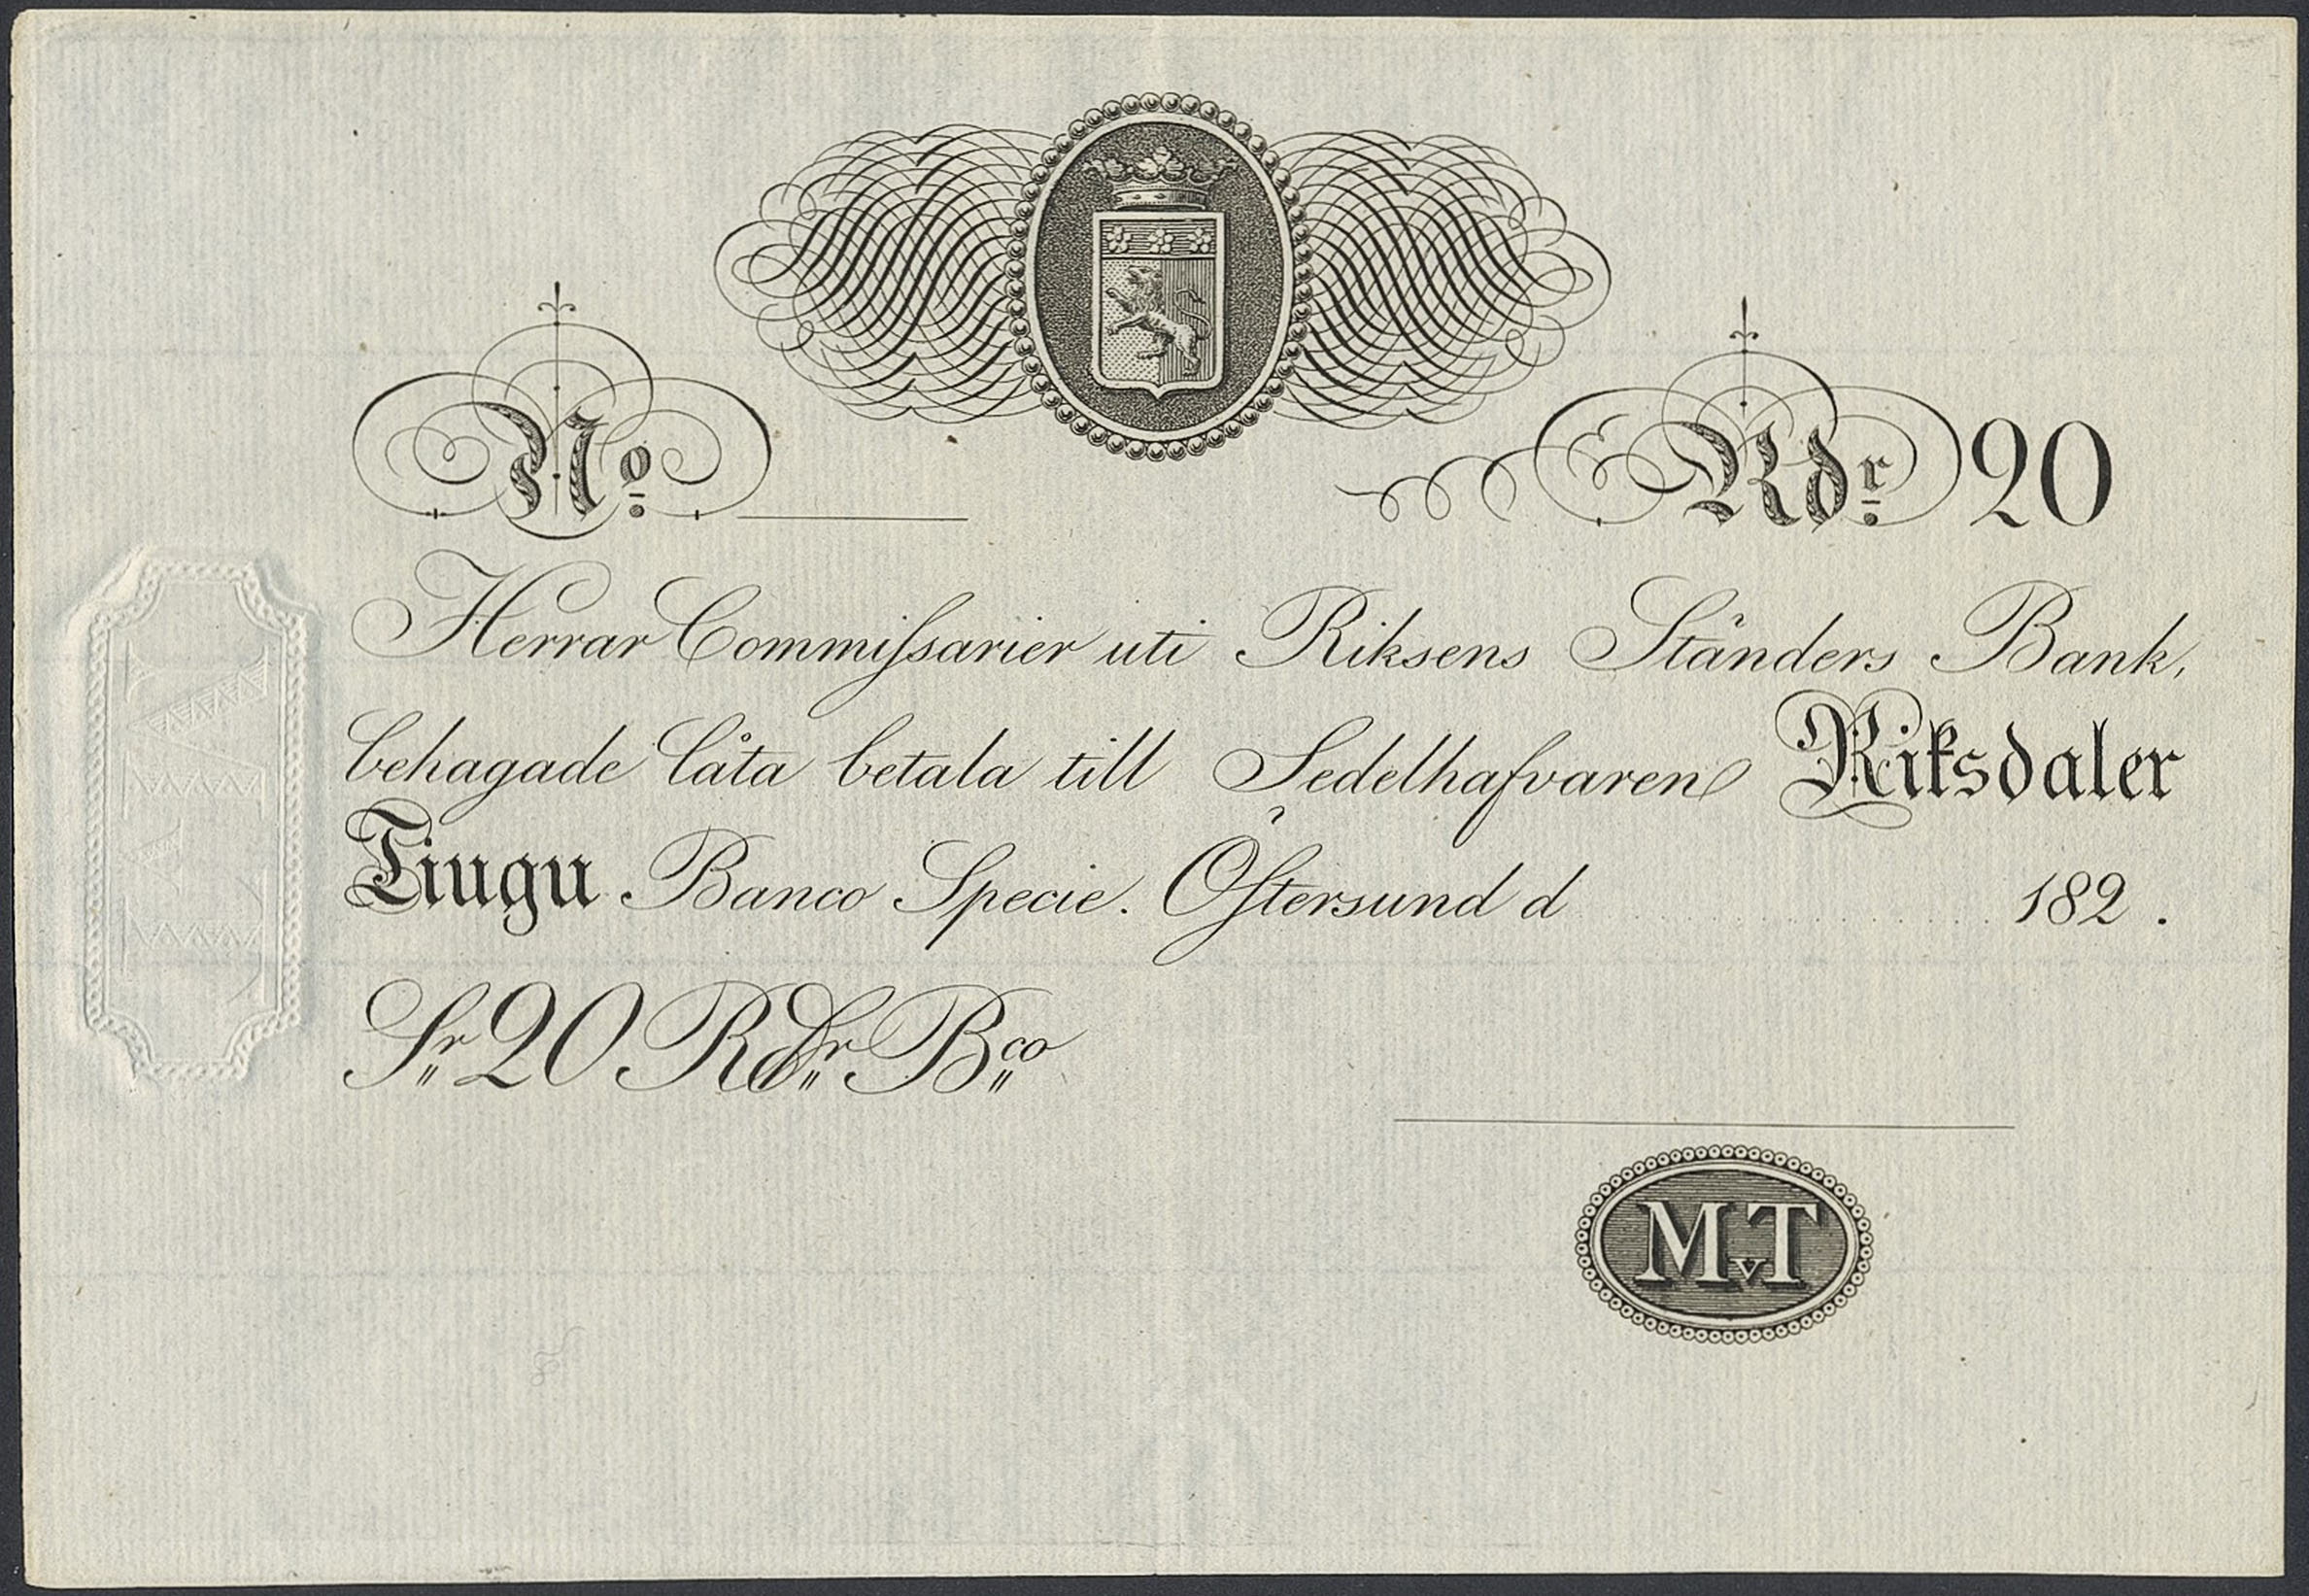 No.
Rdr. 20
Herrar Commiſsarier uti Riksens Ständers Bank,
behagade låta betala till Sedelhafvaren Riksdaler
Tiugu Banco Specie. Öſtersund d 182 .
Sr 20 RdSr Bco
MvT